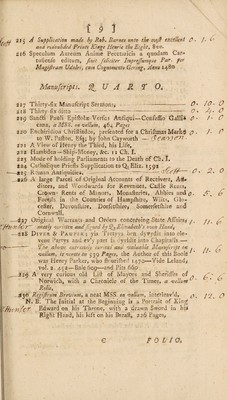 [ 9 ]
215 A Supplication made by Rob. Barnes unto the most excellent and redoubted Prince Kinge Henrie the Eight, 800.
0 . 1 . 6
216 Speculum Aureum Animæ Peccatricis a quodam Cartusiense editum, finit feliciter Impressumque Par. per Magistrum Udalric. cum Cognomento Gering, Anno 1480
Manuscripts. QUARTO.
217 Thirty-six Manuscript Sermons,
218 Thirty-six ditto
219 Sancti Pauli Epistolæ Versus Antiqui—Consessus Gallicani, a MSS. in vellum, 464 Pages
220 Enchiridion Christianum, presented for a Christmas Marke to W. Paston, Esq; by John Cayworth
221 A View of Henry the Third, his Life,
222 Hambden—Ship-Money, &c. 11 Ch. I.
223 Mode of holding Parliaments to the Death of Ch. I.
224 Catholique Priests Supplication to Q. Eliz. 1592
225 Roman Antiquities,
226 A large Parcel of Original Accounts of Receivers, Auditors, and Woodwards for Revenues, Castle Rents, Crown Rents of Manors, Monasteries, Abbies and Forests in the Counties of Hampshire, Wilts, Glocester, Devonshire, Dorsetshire, Somersetshire and Cornwell.
227 Original Warrants and Orders concerning State Affairs mostly written and signed by Q. Elizabeth's own Hand,
1 . 11 . 6
228 DIVES & PAUPER; yis Tretyys ben dyvydit into elevene Partys and evy part is dyvidit into Chapitralis—
The above extremely curious and valuable Manuscript on vellum, is wrote in 539 Pages, the Author of this Book was Henry Parker, who flourished 1470—Vide Leland, vol. 2. 452—Bale 609—and Pits 660.
229 A very curious old List of Mayors and Sheriffes of Norwich, with a Chronicle of the Times, a vellum Rolle,
230 Registrum Brevium, a neat MSS. in vellum, interleav'd,
0 . 12 . 0
N. B. The Initial at the beginning is a Portrait of King Edward on his Throne, with a drawn Sword in his Right Hand, his left on his Breast, 226 Pages,
C
FOLIO.